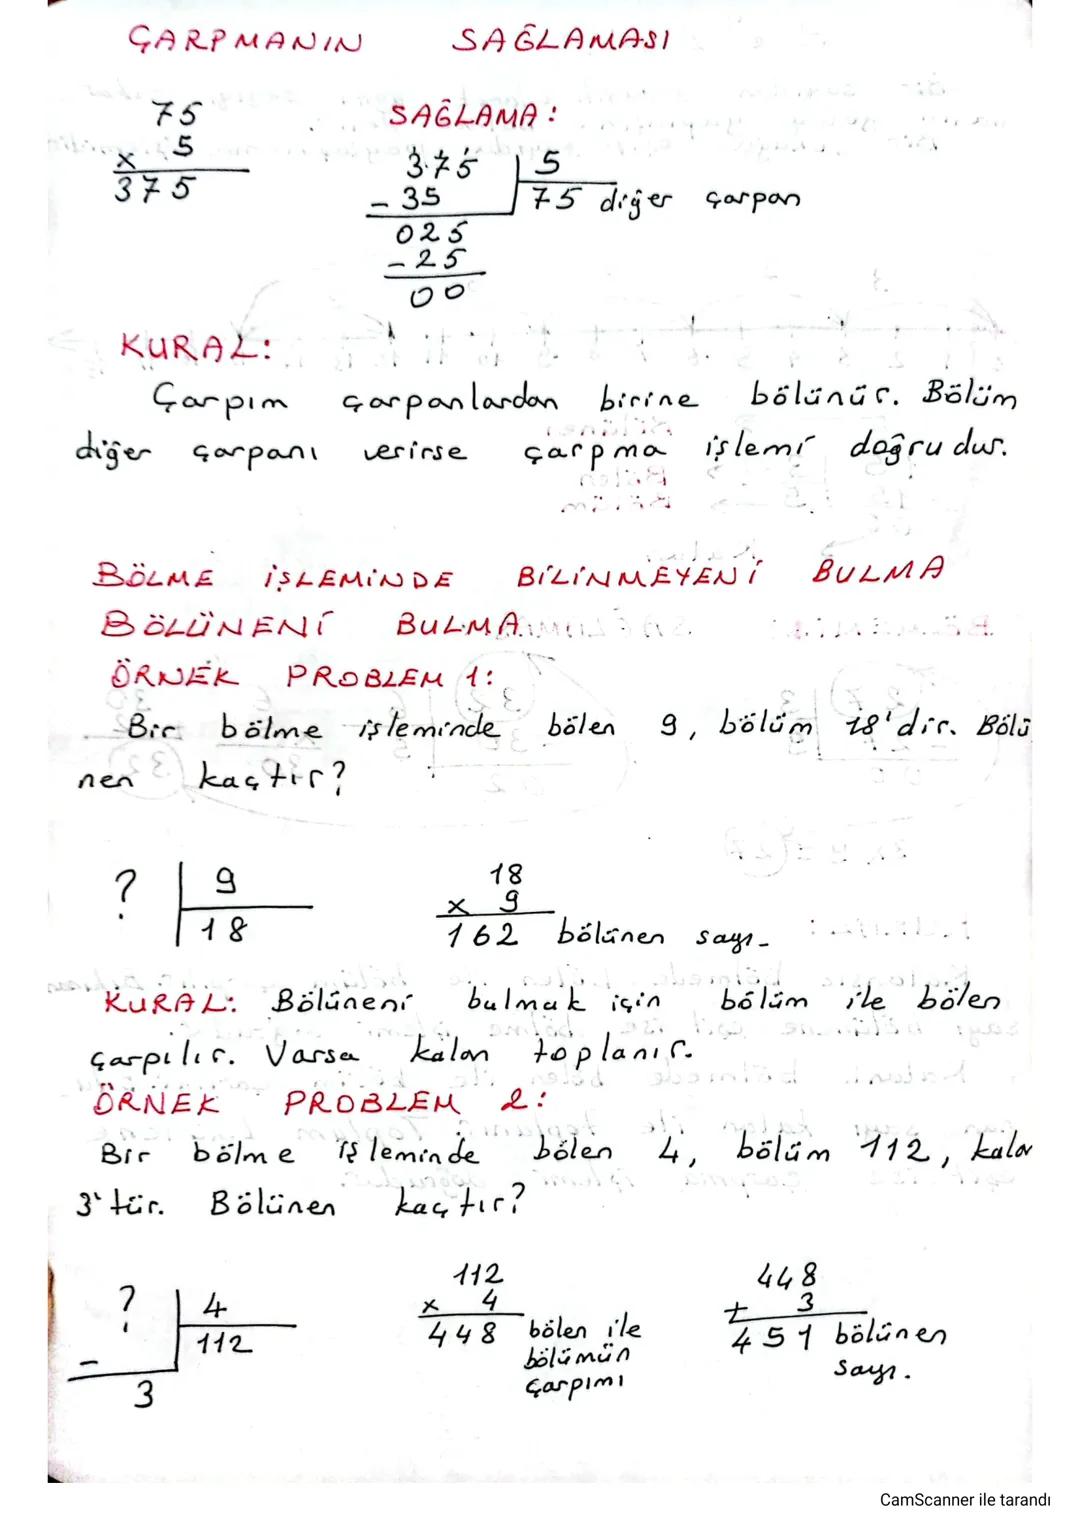 ÇARPMANIN SAĞLAMASI
75
x 5
375
SAĞLAMA:
375 5
- 35 75 diğer çarpan
025
- 25
00
KURAL:
Çarpım çarpanlardan birine bölünür. Bölüm
diğer çarpanı verirse çarpma işlemi doğrudur.
BÖLME İŞLEMİNDE BİLİNMEYENİ BULMA
BÖLÜNENİ BULMA
ÖRNEK PROBLEM 1:
Bir bölme işleminde bölen 9, bölüm 18'dir. Bölü
nen kaçtır?
? 9
18
18
x 9
162 bölünen sayı.
KURAL: Bölüneni bulmak için bölüm ile bölen
çarpılır. Varsa kalan toplanır.
ÖRNEK PROBLEM 2:
Bir bölme işleminde bölen 4, bölüm 112, kalan
3'tür. Bölünen kaçtır?
? 4
- 112
3
112
x 4
448 bölen ile
bölümün
çarpımı
448
+ 3
451 bölünen
sayı.
CamScanner ile tarandı